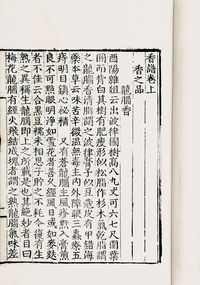 香譜卷上
香之品
龍腦香
酉陽雜俎云出波律國樹高八九丈可六七尺圍葉
圓而背白其樹有肥瘦形似松脂作杉木氣乾脂謂
之龍腦香清脂謂之波律膏子似豆蔻皮有甲錯海
藥本草云味苦辛微溫無毒主內外障眼三蟲療五
痔明目鎮心祕精 又有蒼龍腦主風疹䵟入膏煎
良不可點眼明淨如雪花者善久經風日或如麥麩
者不佳云合黑豆糯米相思子貯之不耗今復有生
熟之異稱生龍腦即上之所載是也其絕妙者目曰
梅花龍腦有經火飛結成塊者謂之熟龍腦氣味差